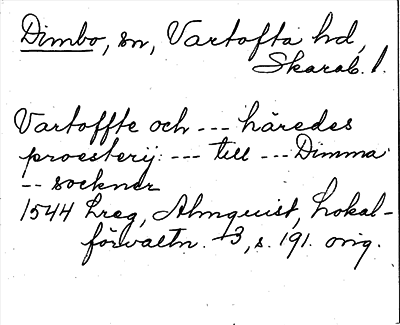 Dimbo, sn, Vartofta hd,
Skarab. l.
Vartoffte och --- häredes
proesterij --- till --- Dimma
-- sockner
1544 Lreg, Almquist, Lokal-
förvaltn. 3, s. 191. orig.